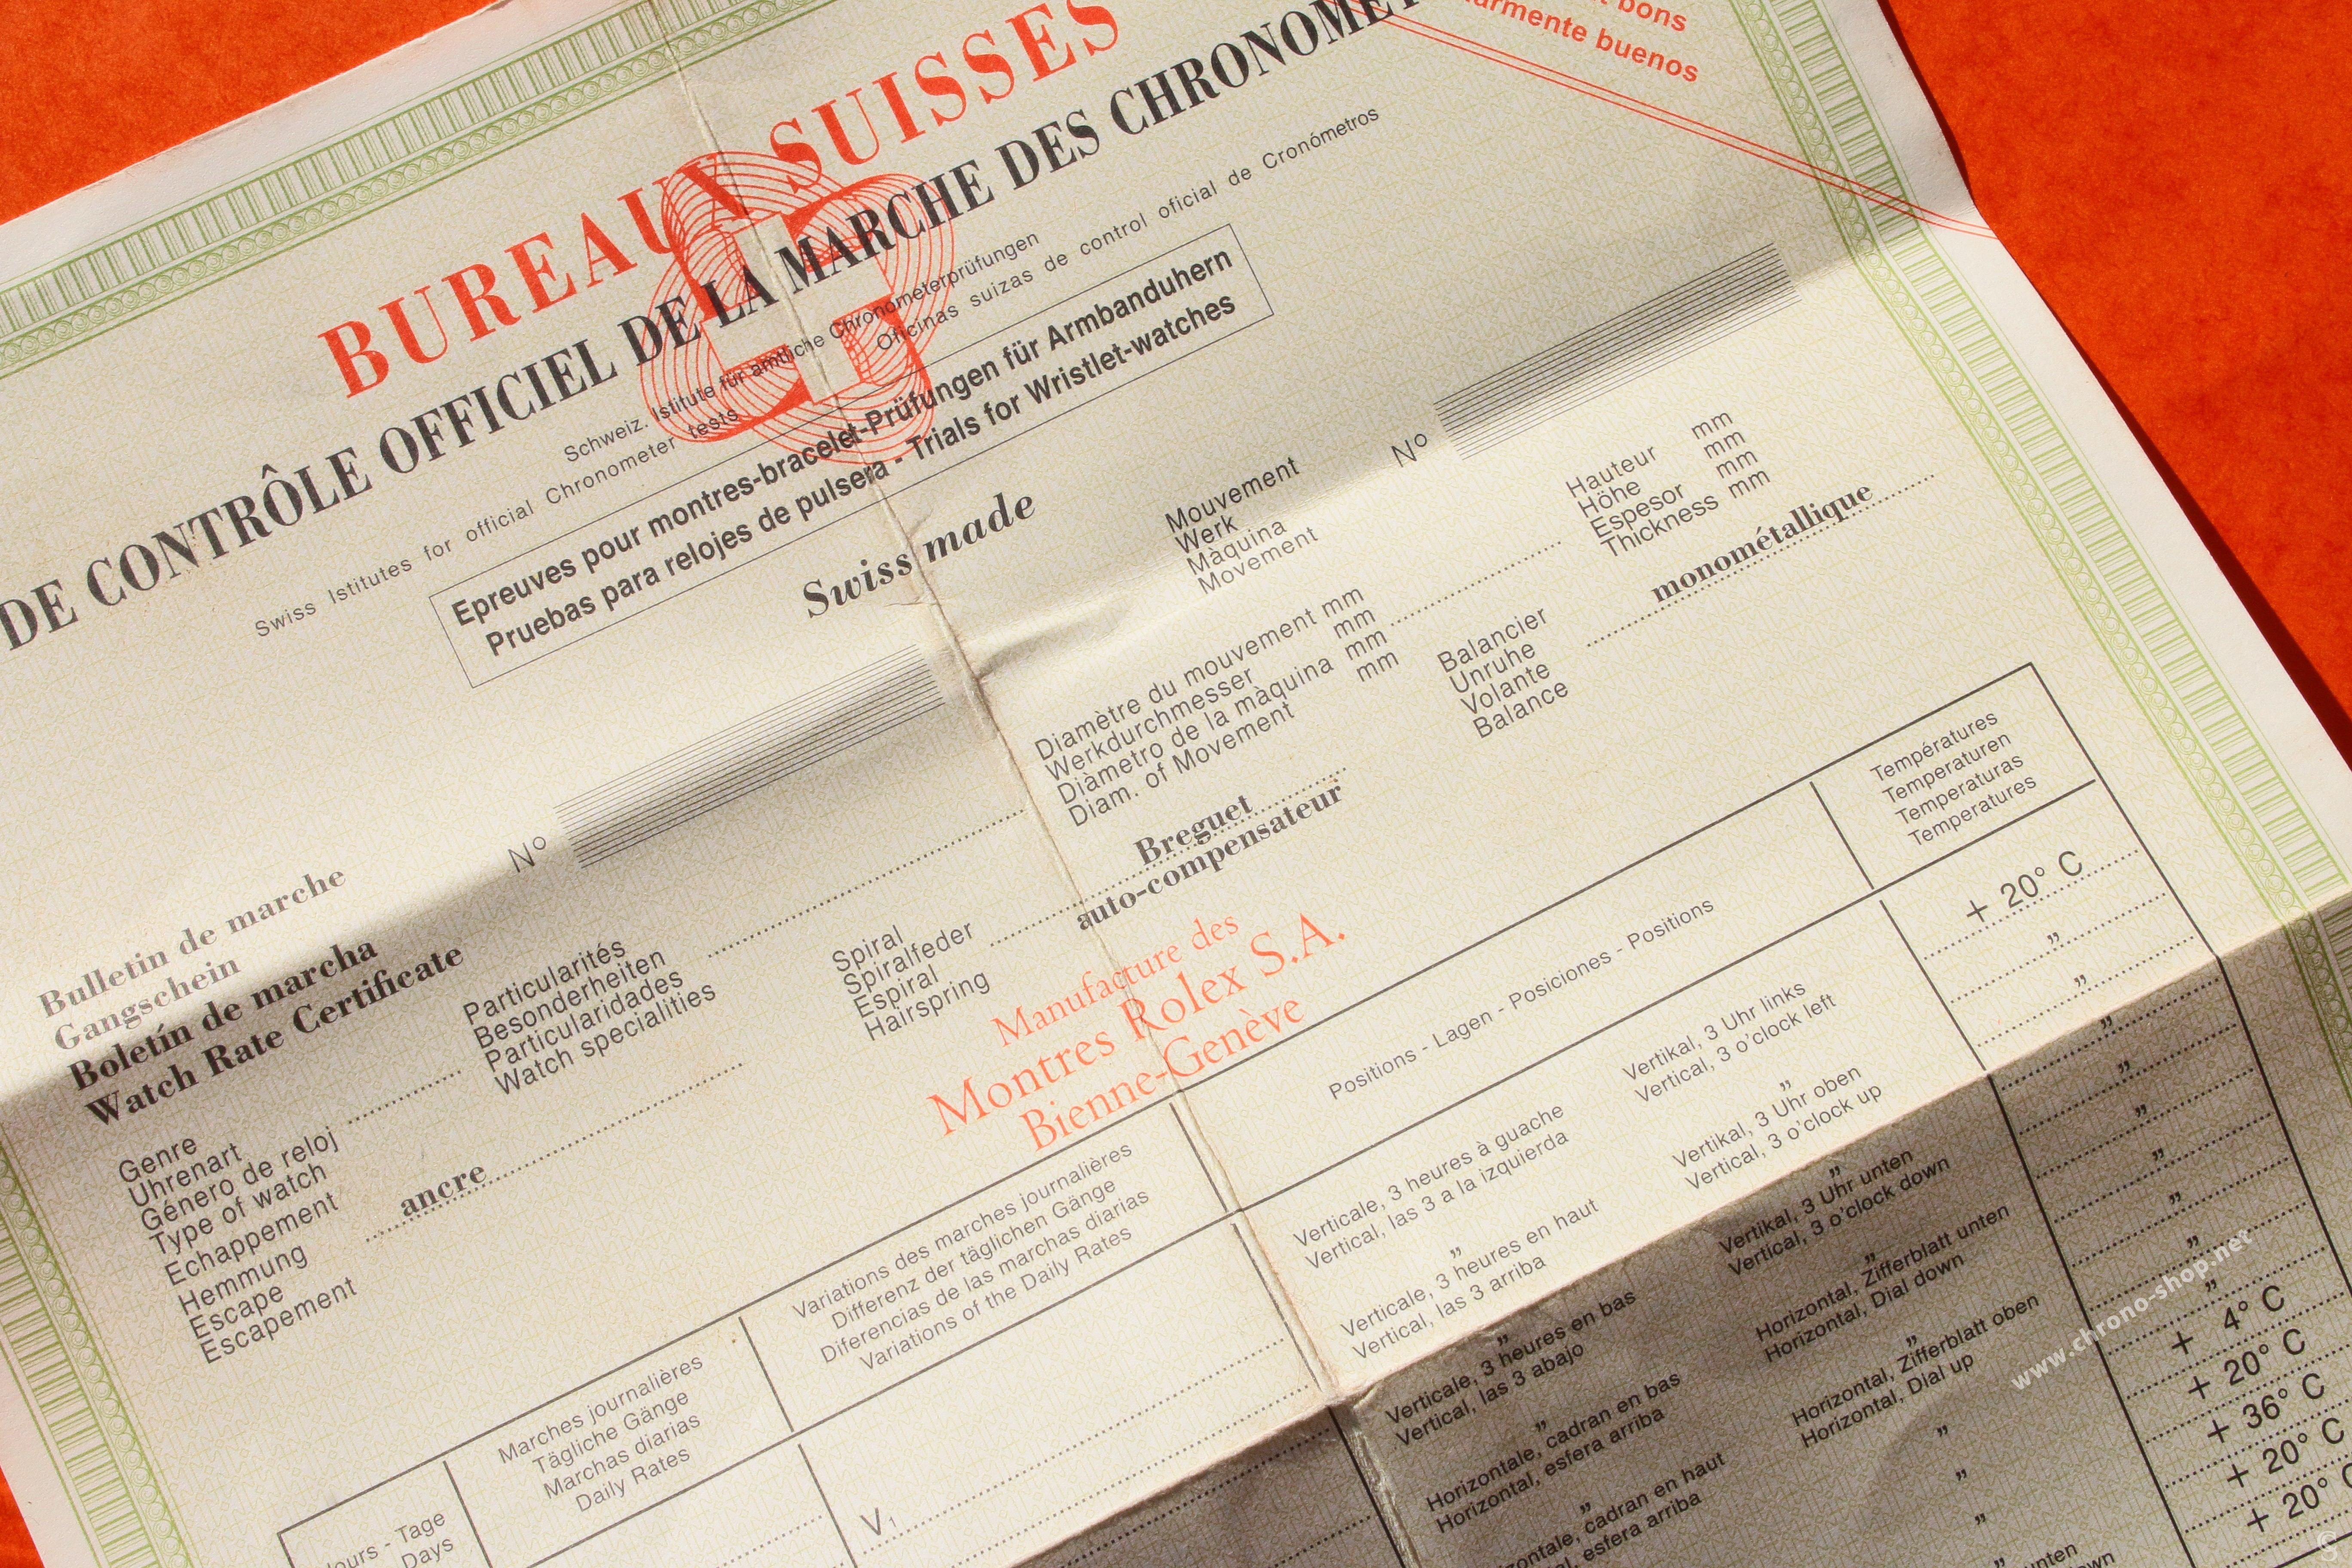 bons
buenos
BUREAUX SUISSES
DE CONTRÔLE OFFICIEL DE LA MARCHE DES
Schweiz. Istitute für amtliche Chronometerprüfungen
Swiss Istitutes for official Chronometer tests
Oficinas suizas de control oficial de Cronómetros
Epreuves pour montres-bracelet-Prüfungen für Armbanduhern
Pruebas para relojes de pulsera - Trials for Wristlet-watches
Swiss made
Bulletin de marche
Gangschein
Boletín de marcha
Watch Rate Certificate
Nº
Mouvement
Werk
Màquina
Movement
Nº
Genre
Uhrenart
Género de reloj
Type of watch
Particularités
Besonderheiten
Particularidades
Watch specialities
Diamètre du mouvement mm
Werkdurchmesser mm
Diàmetro de la màquina mm
Diam. of Movement mm
Hauteur mm
Höhe mm
Espesor mm
Thickness mm
Echappement
Hemmung
Escape
Escapement
ancre
Spiral
Spiralfeder
Espiral
Hairspring
Breguet
auto-compensateur
Balancier
Unruhe
Volante
Balance
monométallique
Manufacture des
Montres Rolex S.A.
Bienne-Genève
Jours - Tage
Days
Marches journalières
Tägliche Gänge
Marchas diarias
Daily Rates
Variations des marches journalières
Differenz der täglichen Gänge
Diferencias de las marchas diarias
Variations of the Daily Rates
Positions - Lagen - Posiciones - Positions
Températures
Temperaturen
Temperaturas
Temperatures
V1
Verticale, 3 heures à guache
Vertical, las 3 a la izquierda
Vertikal, 3 Uhr links
Vertical, 3 o'clock left
+ 20° C
"
"
"
Verticale, 3 heures en haut
Vertical, las 3 arriba
"
Vertikal, 3 Uhr oben
Vertical, 3 o'clock up
"
"
Verticale, 3 heures en bas
Vertical, las 3 abajo
"
Vertikal, 3 Uhr unten
Vertical, 3 o'clock down
"
"
Horizontale, cadran en bas
Horizontal, esfera arriba
"
Horizontal, Zifferblatt unten
Horizontal, Dial down
"
"
cadran en haut
esfera arriba
"
Horizontal, Zifferblatt oben
Horizontal, Dial up
"
"
"
+ 4° C
"
+ 20° C
"
+ 36° C
"
+ 20° C
unten
+ 20° C
www.chrono-shop.net